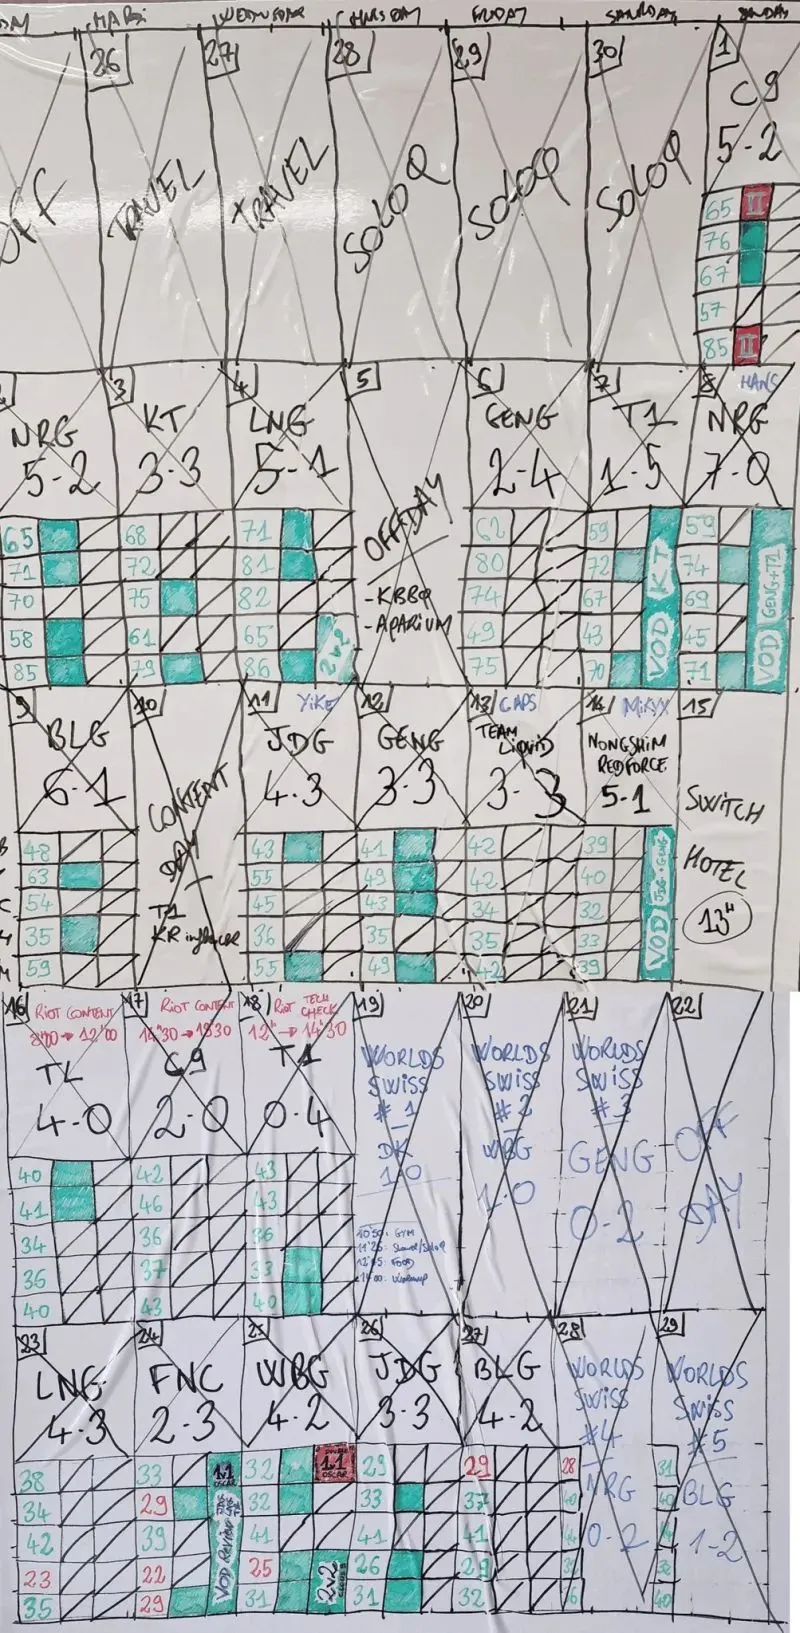 26
27
28
29
30
1
C9
5-2
OFF
TRAVEL
TRAVEL
SOLOQ
SOLOQ
SOLOQ
65 II
76
67
57
85 II
3
4
5
6
7
8 HANS
NRG
KT
LNG
GENG
T1
NRG
5-2
3-3
5-1
2-4
1-5
7-0
OFFDAY
- KBBQ
- AQARIUM
65
68
71
62
59
59
71
72
81
80
72
74
70
75
82
74
67
69
58
61
65
49
43
45
85
79
86
75
70
71
2v2
VOD KT
VOD GENG+T1
9
10
11 YiKe
12
13 CAPS
14 MiKYX
15
BLG
CONTENT
DAY
T1
KR influencer
JDG
GENG
TEAM
LIQUID
NONGSHIM
REDFORCE
6-1
4-3
3-3
3-3
5-1
SWITCH
HOTEL
13H
48
43
41
42
39
63
55
49
42
40
54
45
43
34
32
35
36
35
35
33
59
55
49
42
39
VOD JDG+GENG
16
17
18
19
20
21
22
RIOT CONTENT
RIOT CONTENT
RIOT TECH
CHECK
TL
C9
T1
4-0
2-0
0-4
WORLDS
SWISS
#1
DK
1-0
WORLDS
SWISS
#2
WBG
1-0
WORLDS
SWISS
#3
GENG
0-2
OFF
DAY
40
42
43
41
46
43
34
36
36
36
37
33
40
43
40
23
24
25
26
27
28
29
LNG
FNC
WBG
JDG
BLG
4-3
2-3
4-2
3-3
4-2
WORLDS
SWISS
#4
NRG
0-2
WORLDS
SWISS
#5
BLG
1-2
38
33
32
29
29
28
31
34
29
32
33
37
42
39
41
41
41
23
22
25
26
29
35
29
31
31
32
1v1
OSCAR
VOD Review
1v1
OSCAR
2v2